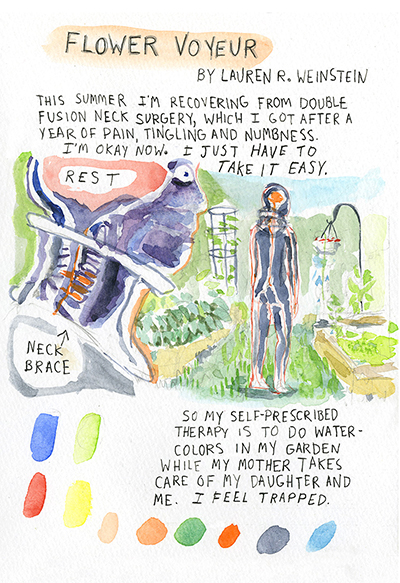 FLOWER VOYEUR
BY LAUREN R. WEINSTEIN
THIS SUMMER I'M RECOVERING FROM DOUBLE
FUSION NECK SURGERY, WHICH I GOT AFTER A
YEAR OF PAIN, TINGLING AND NUMBNESS.
I'M OKAY NOW. I JUST HAVE TO
TAKE IT EASY.
REST
NECK
BRACE
SO MY SELF-PRESCRIBED
THERAPY IS TO DO WATER-
COLORS IN MY GARDEN
WHILE MY MOTHER TAKES
CARE OF MY DAUGHTER AND
ME. I FEEL TRAPPED.